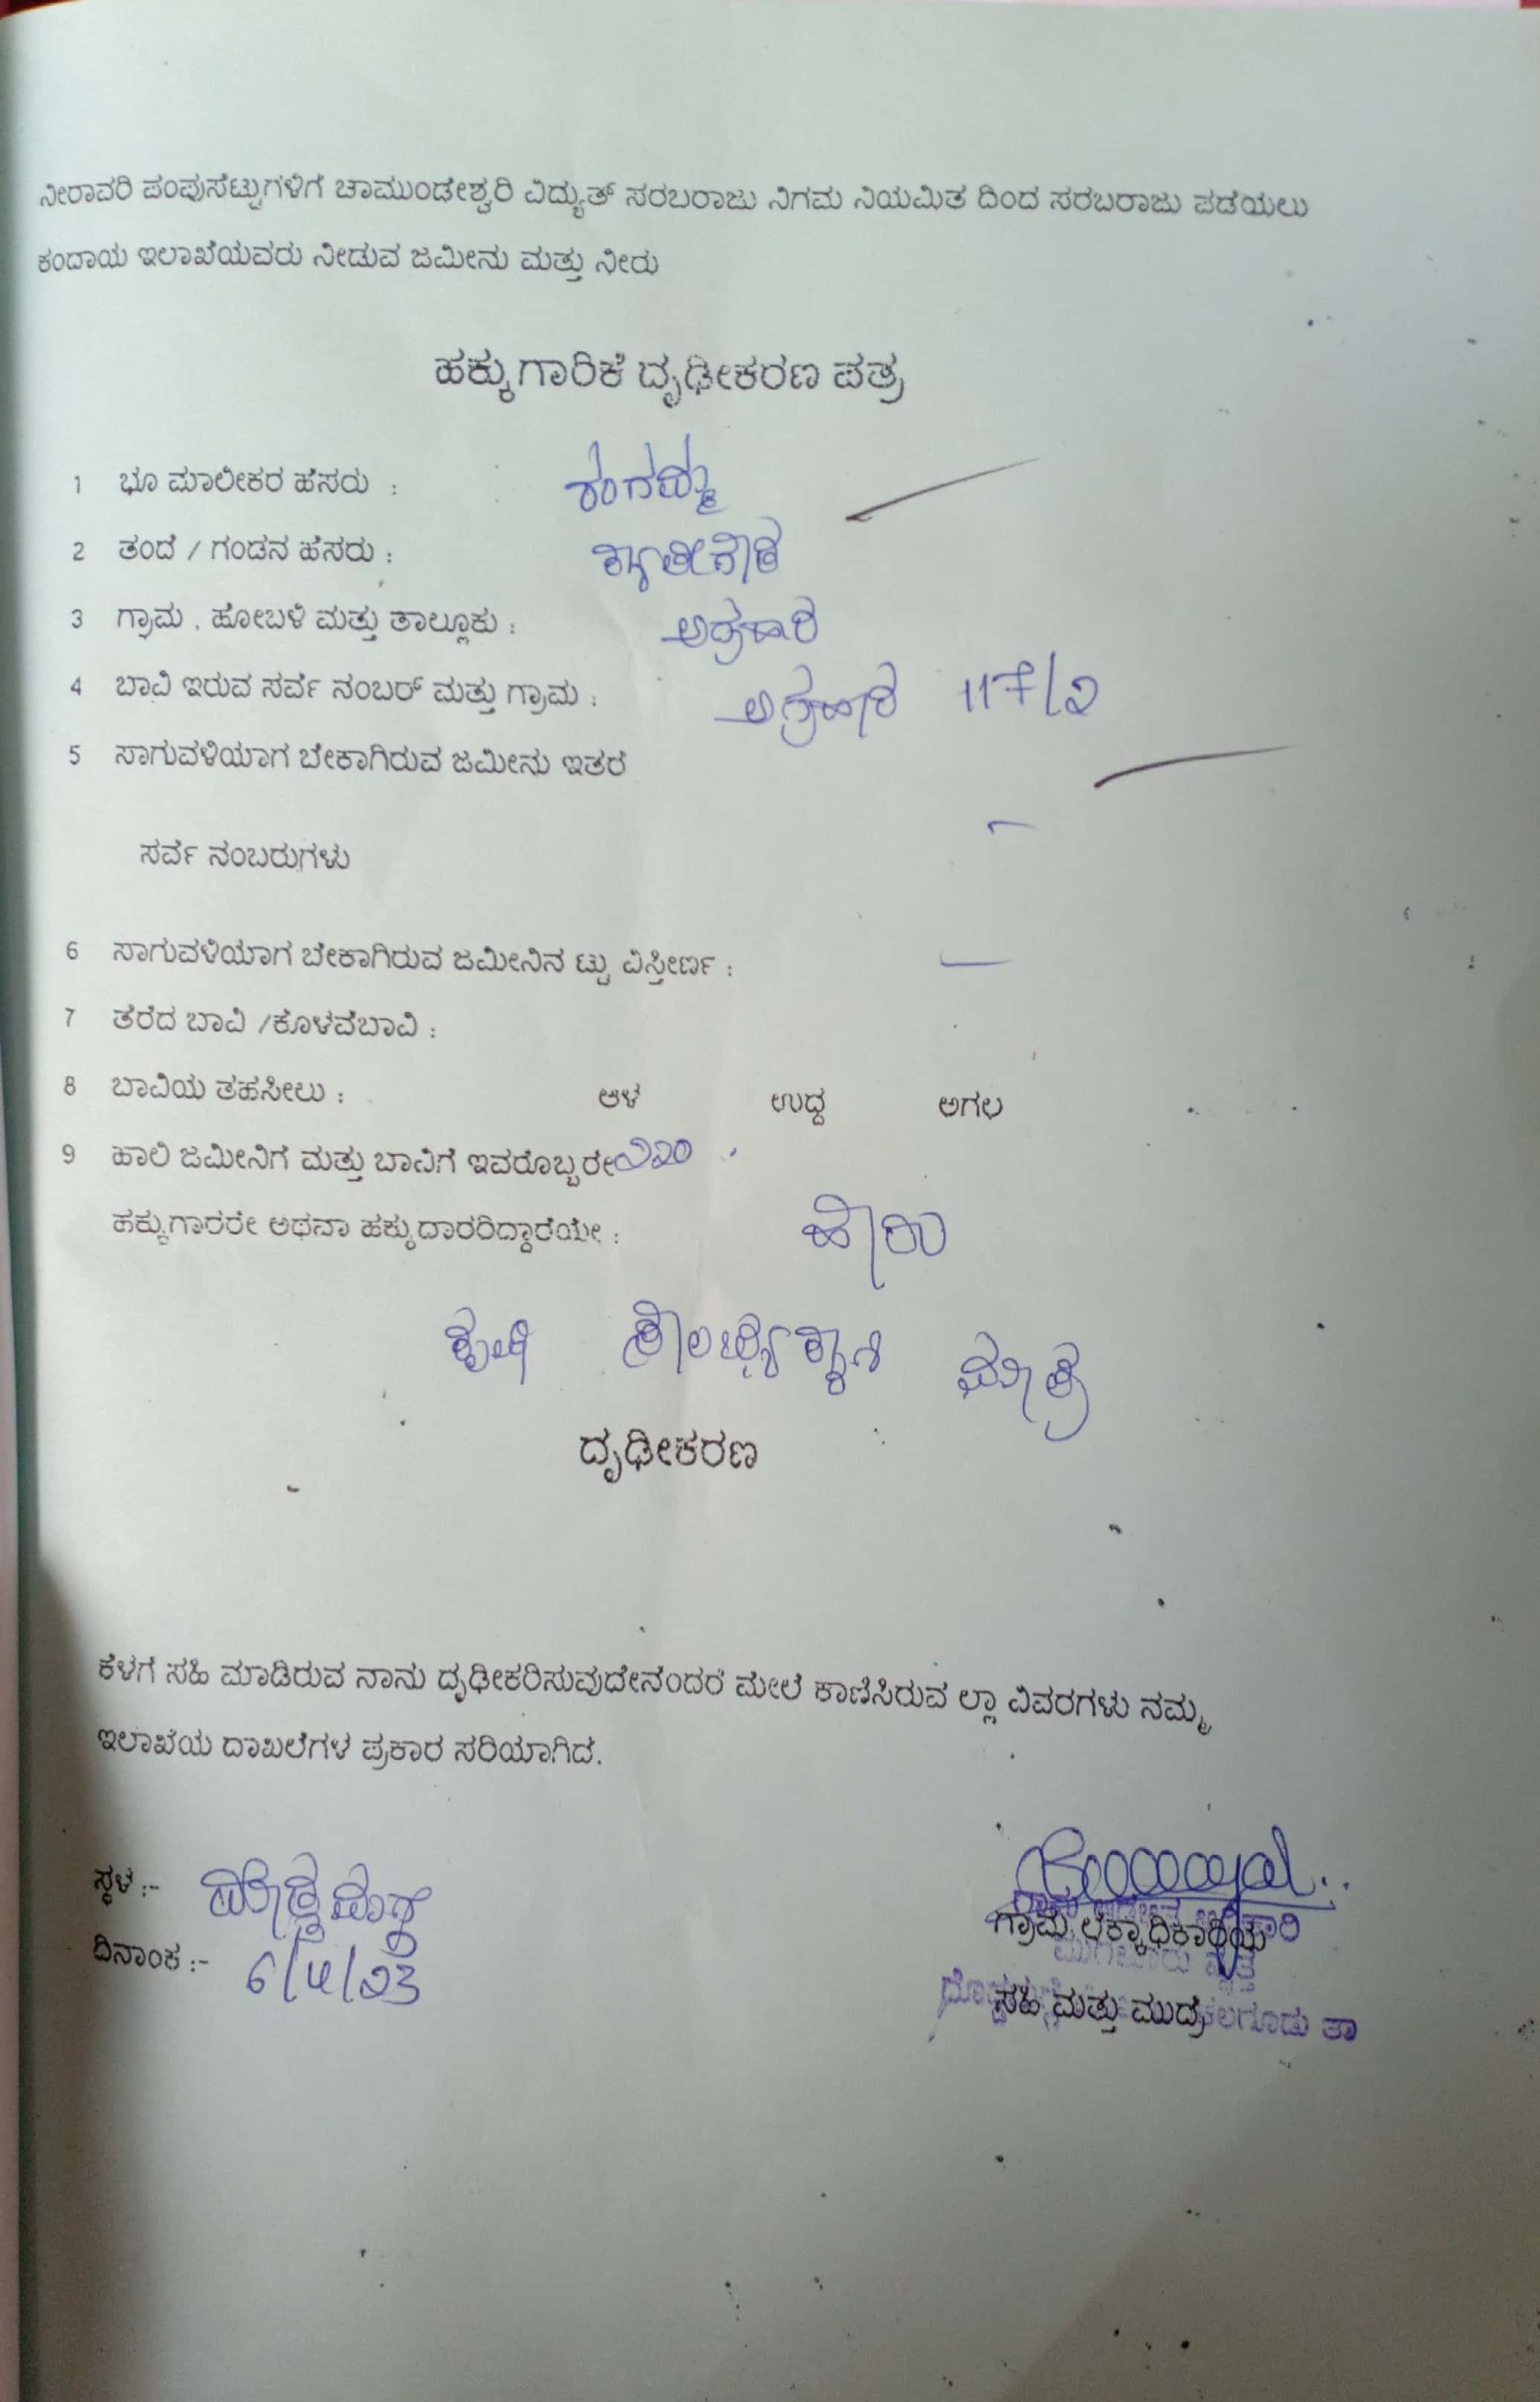 ನೀರಾವರಿ ಪಂಪುಸೆಟ್ಟುಗಳಿಗೆ ಚಾಮುಂಡೇಶ್ವರಿ ವಿದ್ಯುತ್ ಸರಬರಾಜು ನಿಗಮ ನಿಯಮಿತ ದಿಂದ ಸರಬರಾಜು ಪಡೆಯಲು
ಕಂದಾಯ ಇಲಾಖೆಯವರು ನೀಡುವ ಜಮೀನು ಮತ್ತು ನೀರು
ಹಕ್ಕುಗಾರಿಕೆ ದೃಢೀಕರಣ ಪತ್ರ
1 ಭೂ ಮಾಲೀಕರ ಹೆಸರು :
2 ತಂದೆ / ಗಂಡನ ಹೆಸರು :
3 ಗ್ರಾಮ . ಹೋಬಳಿ ಮತ್ತು ತಾಲ್ಲೂಕು : ಅಗ್ರಹಾರ
4 ಬಾವಿ ಇರುವ ಸರ್ವೆ ನಂಬರ್ ಮತ್ತು ಗ್ರಾಮ : ಅಗ್ರಹಾರ 117/2
5 ಸಾಗುವಳಿಯಾಗ ಬೇಕಾಗಿರುವ ಜಮೀನು ಇತರೆ
ಸರ್ವೆ ನಂಬರುಗಳು
6 ಸಾಗುವಳಿಯಾಗ ಬೇಕಾಗಿರುವ ಜಮೀನಿನ ಟ್ಟು ವಿಸ್ತೀರ್ಣ :
7 ತೆರೆದ ಬಾವಿ /ಕೊಳವೆಬಾವಿ :
8 ಬಾವಿಯ ತಹಸೀಲು : ಆಳ ಉದ್ದ ಅಗಲ
9 ಹಾಲಿ ಜಮೀನಿಗೆ ಮತ್ತು ಬಾವಿಗೆ ಇವರೊಬ್ಬರೇ
ಹಕ್ಕುಗಾರರೇ ಅಥವಾ ಹಕ್ಕುದಾರರಿದ್ದಾರೆಯೇ : ಹೌದು
ಮಾತ್ರ
ದೃಢೀಕರಣ
ಕೆಳಗೆ ಸಹಿ ಮಾಡಿರುವ ನಾನು ದೃಢೀಕರಿಸುವುದೇನೆಂದರೆ ಮೇಲೆ ಕಾಣಿಸಿರುವ ಲ್ಲಾ ವಿವರಗಳು ನಮ್ಮ
ಇಲಾಖೆಯ ದಾಖಲೆಗಳ ಪ್ರಕಾರ ಸರಿಯಾಗಿದೆ.
ಸ್ಥಳ :-
ದಿನಾಂಕ :- 6/4/23
ಗ್ರಾಮ ಲೆಕ್ಕಾಧಿಕಾರಿಯ
ಸಹಿ ಮತ್ತು ಮುದ್ರೆ